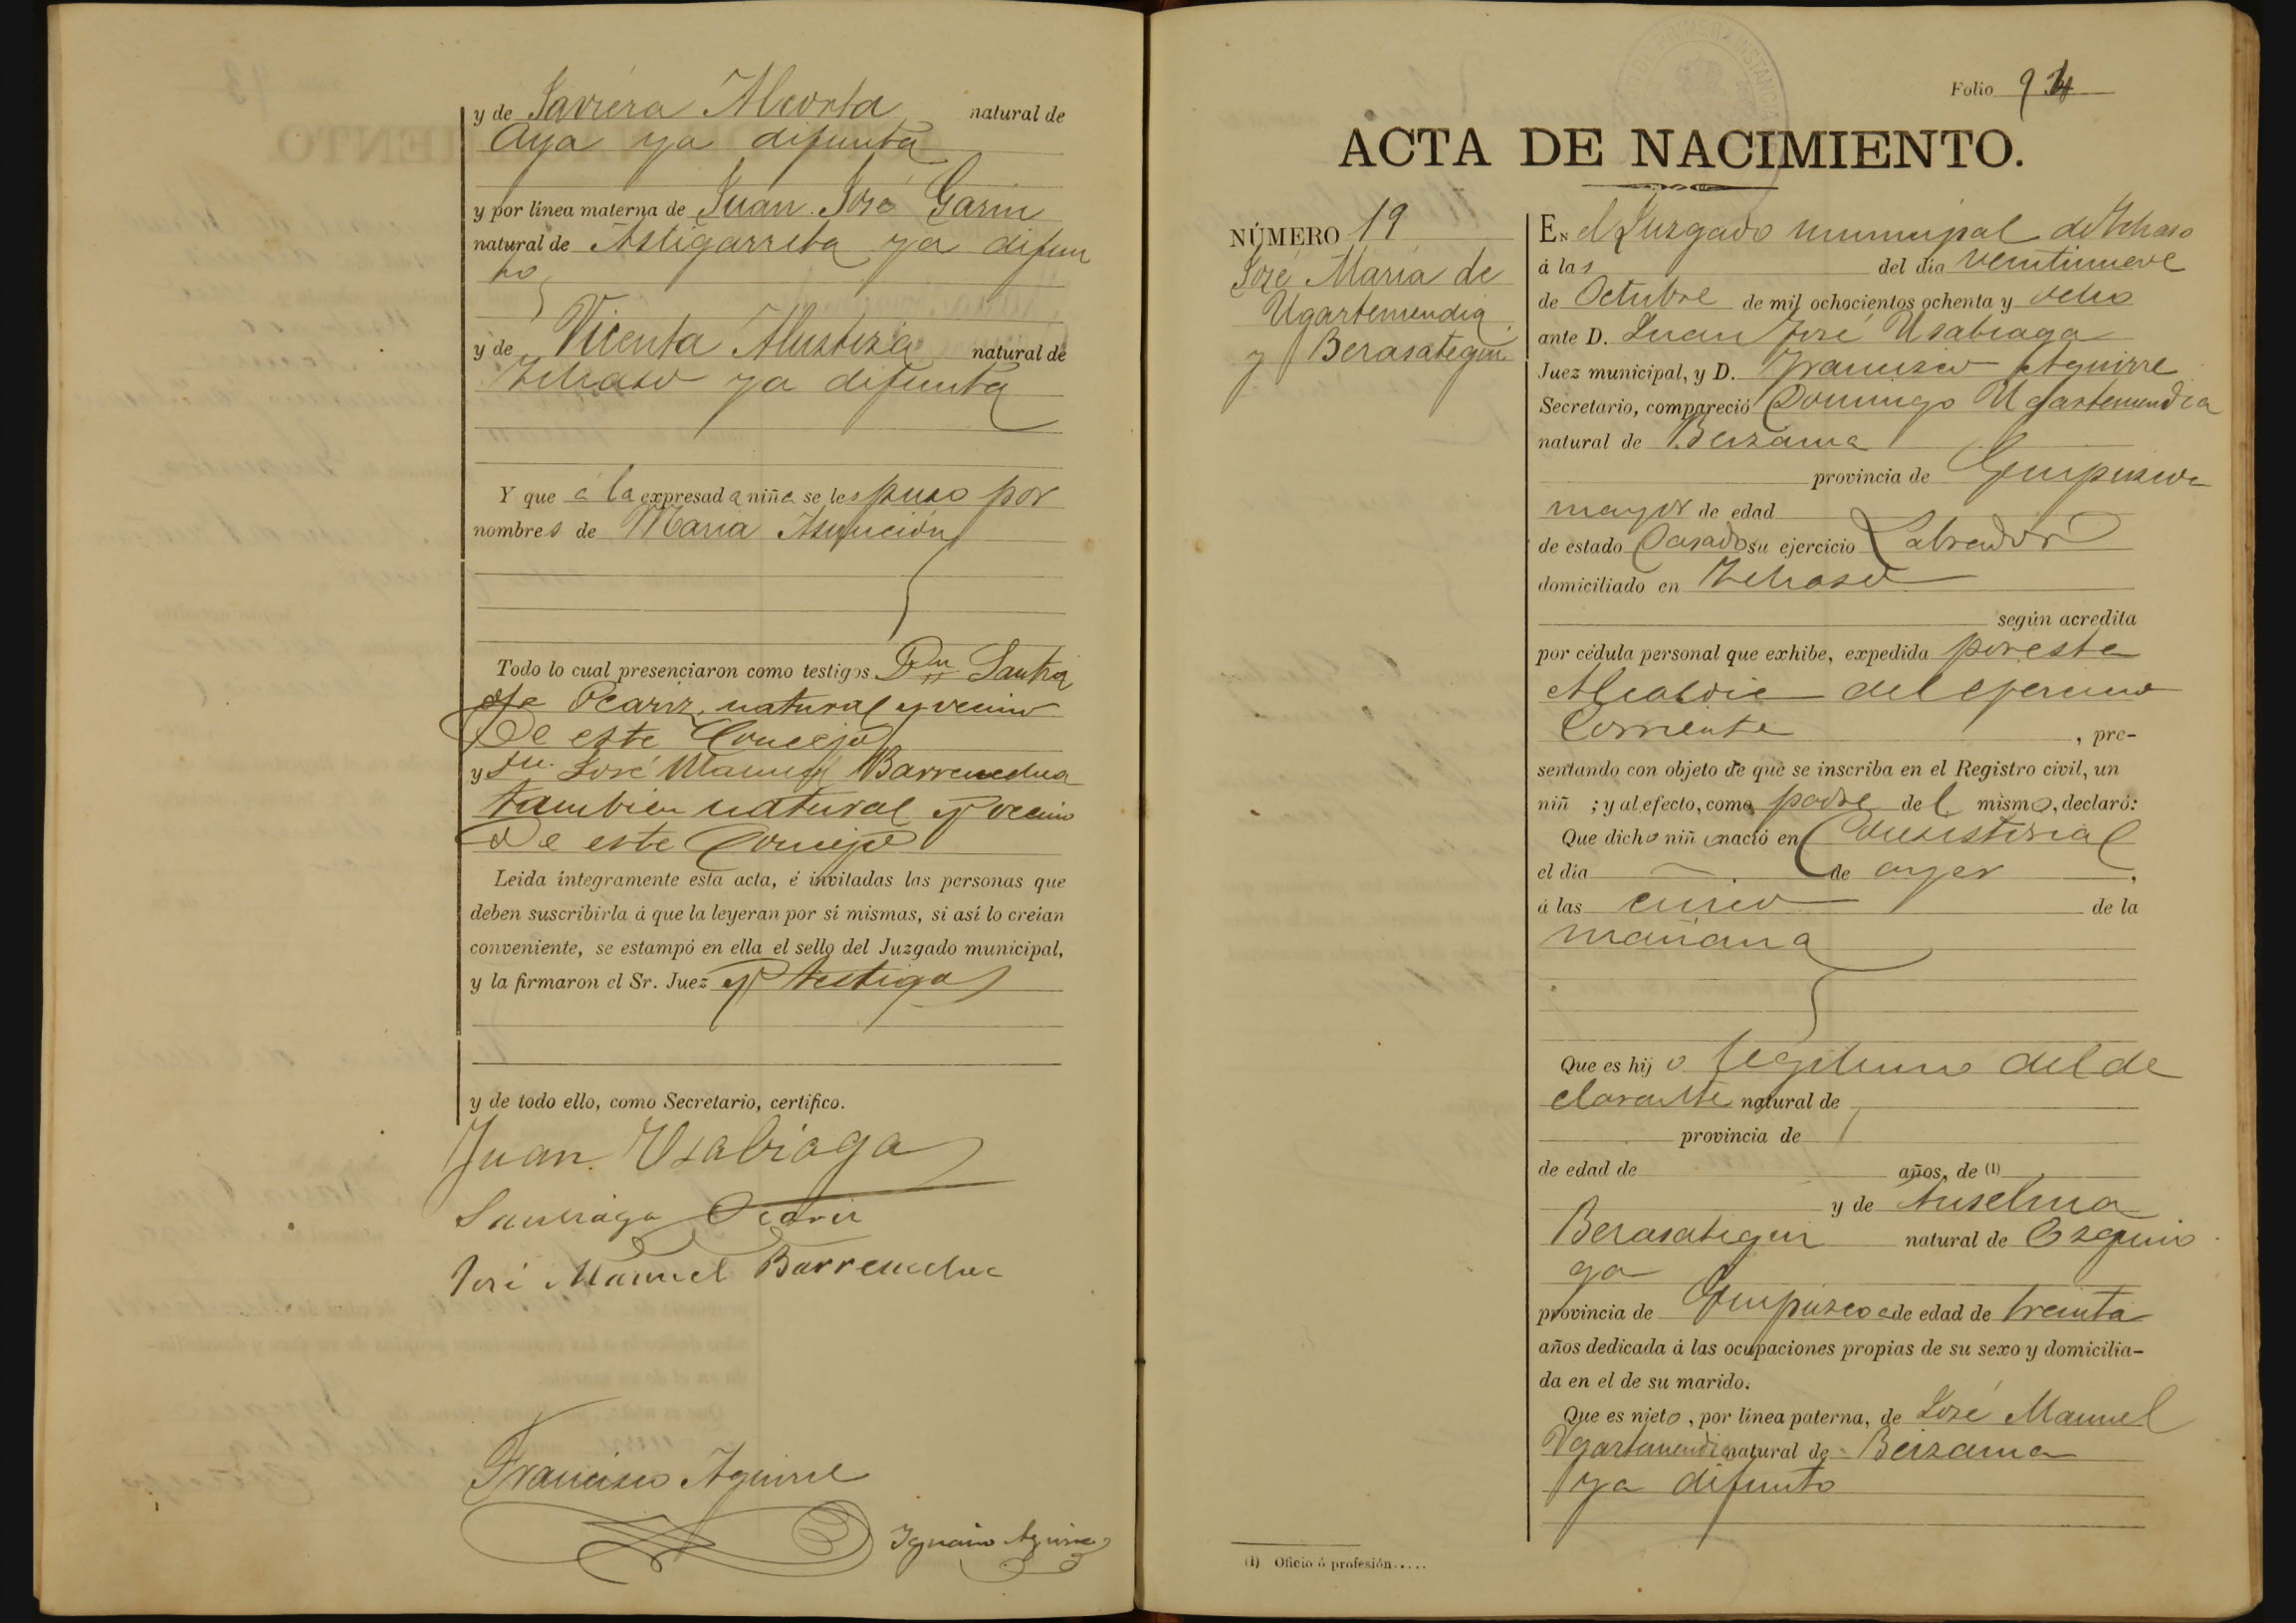 y de Saviera Alcorta natural de
Aya ya difunta
y por línea materna de Juan José Garin
natural de Astigarreta ya difun
to
y de Vicenta Alustiza natural de
Ichaso ya difunta
Y que á la expresada niña se les puso por
nombres de Maria Asunción
Todo lo cual presenciaron como testigos Dn Santia
de Ocariz natural y vecino
De este Concejo
y Dn. José Manuel Barrenechea
tambien natural y vecino
De este Concejo
Leida íntegramente esta acta, é invitadas las personas que
deben suscribirla á que la leyeran por sí mismas, si así lo creían
conveniente, se estampó en ella el sello del Juzgado municipal,
y la firmaron el Sr. Juez y testigos
y de todo ello, como Secretario, certifico.
Juan Usabiaga
Santiago Ocariz
José Manuel Barrenechea
Francisco Aguirre
Ignacio Aguirre
Folio 94
ACTA DE NACIMIENTO.
NÚMERO 19
José María de
Ugartemendia
y Berasategui
En el Juzgado municipal de Ichaso
á las del dia veintinueve
de Octubre de mil ochocientos ochenta y ocho
ante D. Juan José Usabiaga
Juez municipal, y D. Francisco Aguirre
Secretario, compareció Domingo Ugartemendia
natural de Beizama
provincia de Guipuzcoa
mayor de edad
de estado Casado su ejercicio Labrador
domiciliado en Ichaso
según acredita
por cédula personal que exhibe, expedida por esta
Alcaldia del ejercicio
Corriente , pre-
sentando con objeto de que se inscriba en el Registro civil, un
niñ ; y al efecto, como padre del mismo, declaró:
Que dicho niño nació en Consistorial
el día de ayer ,
á las cinco de la
mañana
Que es hijo legitimo del de
clarante natural de
provincia de
de edad de años, de (1)
y de Anselma
Berasategui natural de Ezquio
ga
provincia de Guipuzcoa de edad de treinta
años dedicada á las ocupaciones propias de su sexo y domicilia-
da en el de su marido.
Que es nieto, por línea paterna, de José Manuel
Ugartemendia natural de Beizama
ya difunto
(1) Oficio ó profesión.....